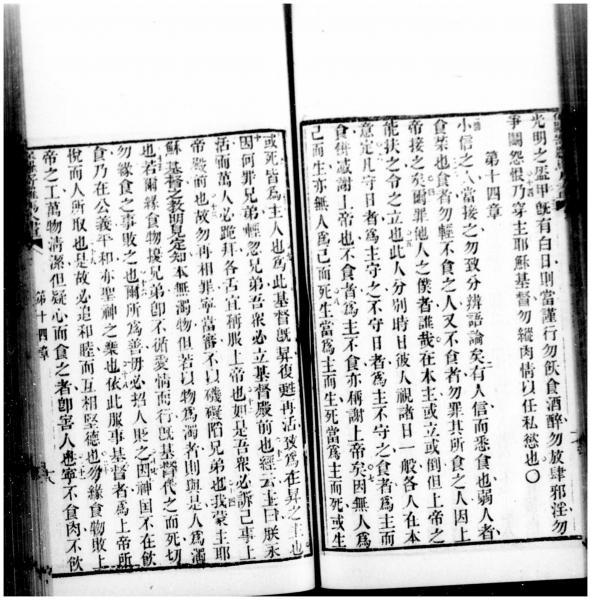 光明之盔甲既有白日則當謹行勿飲食酒醉勿放肆邪淫勿
爭鬪怨恨乃穿主耶穌基督勿縱肉情以任私慾也〇
第十四章
小信之人當接之勿致分辨語論矣有人信而悉食也弱人者
食菜也食者勿輕不食之人又不食者勿罪其所食之人因上
帝接之矣爾罪他人之僕者誰哉在本主或立或倒但上帝之
能扶之令之立也此人分別時日彼人視諸日一般各人在本
意定凡守日者為主守之不守日者為主不守之食者為主而
食併感謝上帝也不食者為主不食亦稱謝上帝矣因無人為
己而生亦無人為己而死生當為主而生死當為主而死或生
或死皆為主人也為此基督既死復甦再活致為在昇之主也
因何罪兄弟輕忽兄弟吾衆必立基督嚴前也經云主曰朕永
活而萬人必跪拜各舌宜稱服上帝也如是吾衆必訴己事上
帝嚴前也故勿再相罪寧當審不以礙礙陷兄弟也我蒙主耶
穌基督之教明見定知本無濁物但若以物為濁者則與是人為濁
也若爾緣食物擾兄弟卽不循愛情而行既基督代之而死切
勿緣食之事敗之也爾所為善毋必招人貶之因神国不在飲
食乃在公義平和亦聖神之樂也依此服事基督者為上帝所
悅而人所取也是故必追和睦而互相堅德也勿緣食物敗上
帝之工萬物清潔但疑心而食之者卽害人也寧不食肉不飲
第十四章